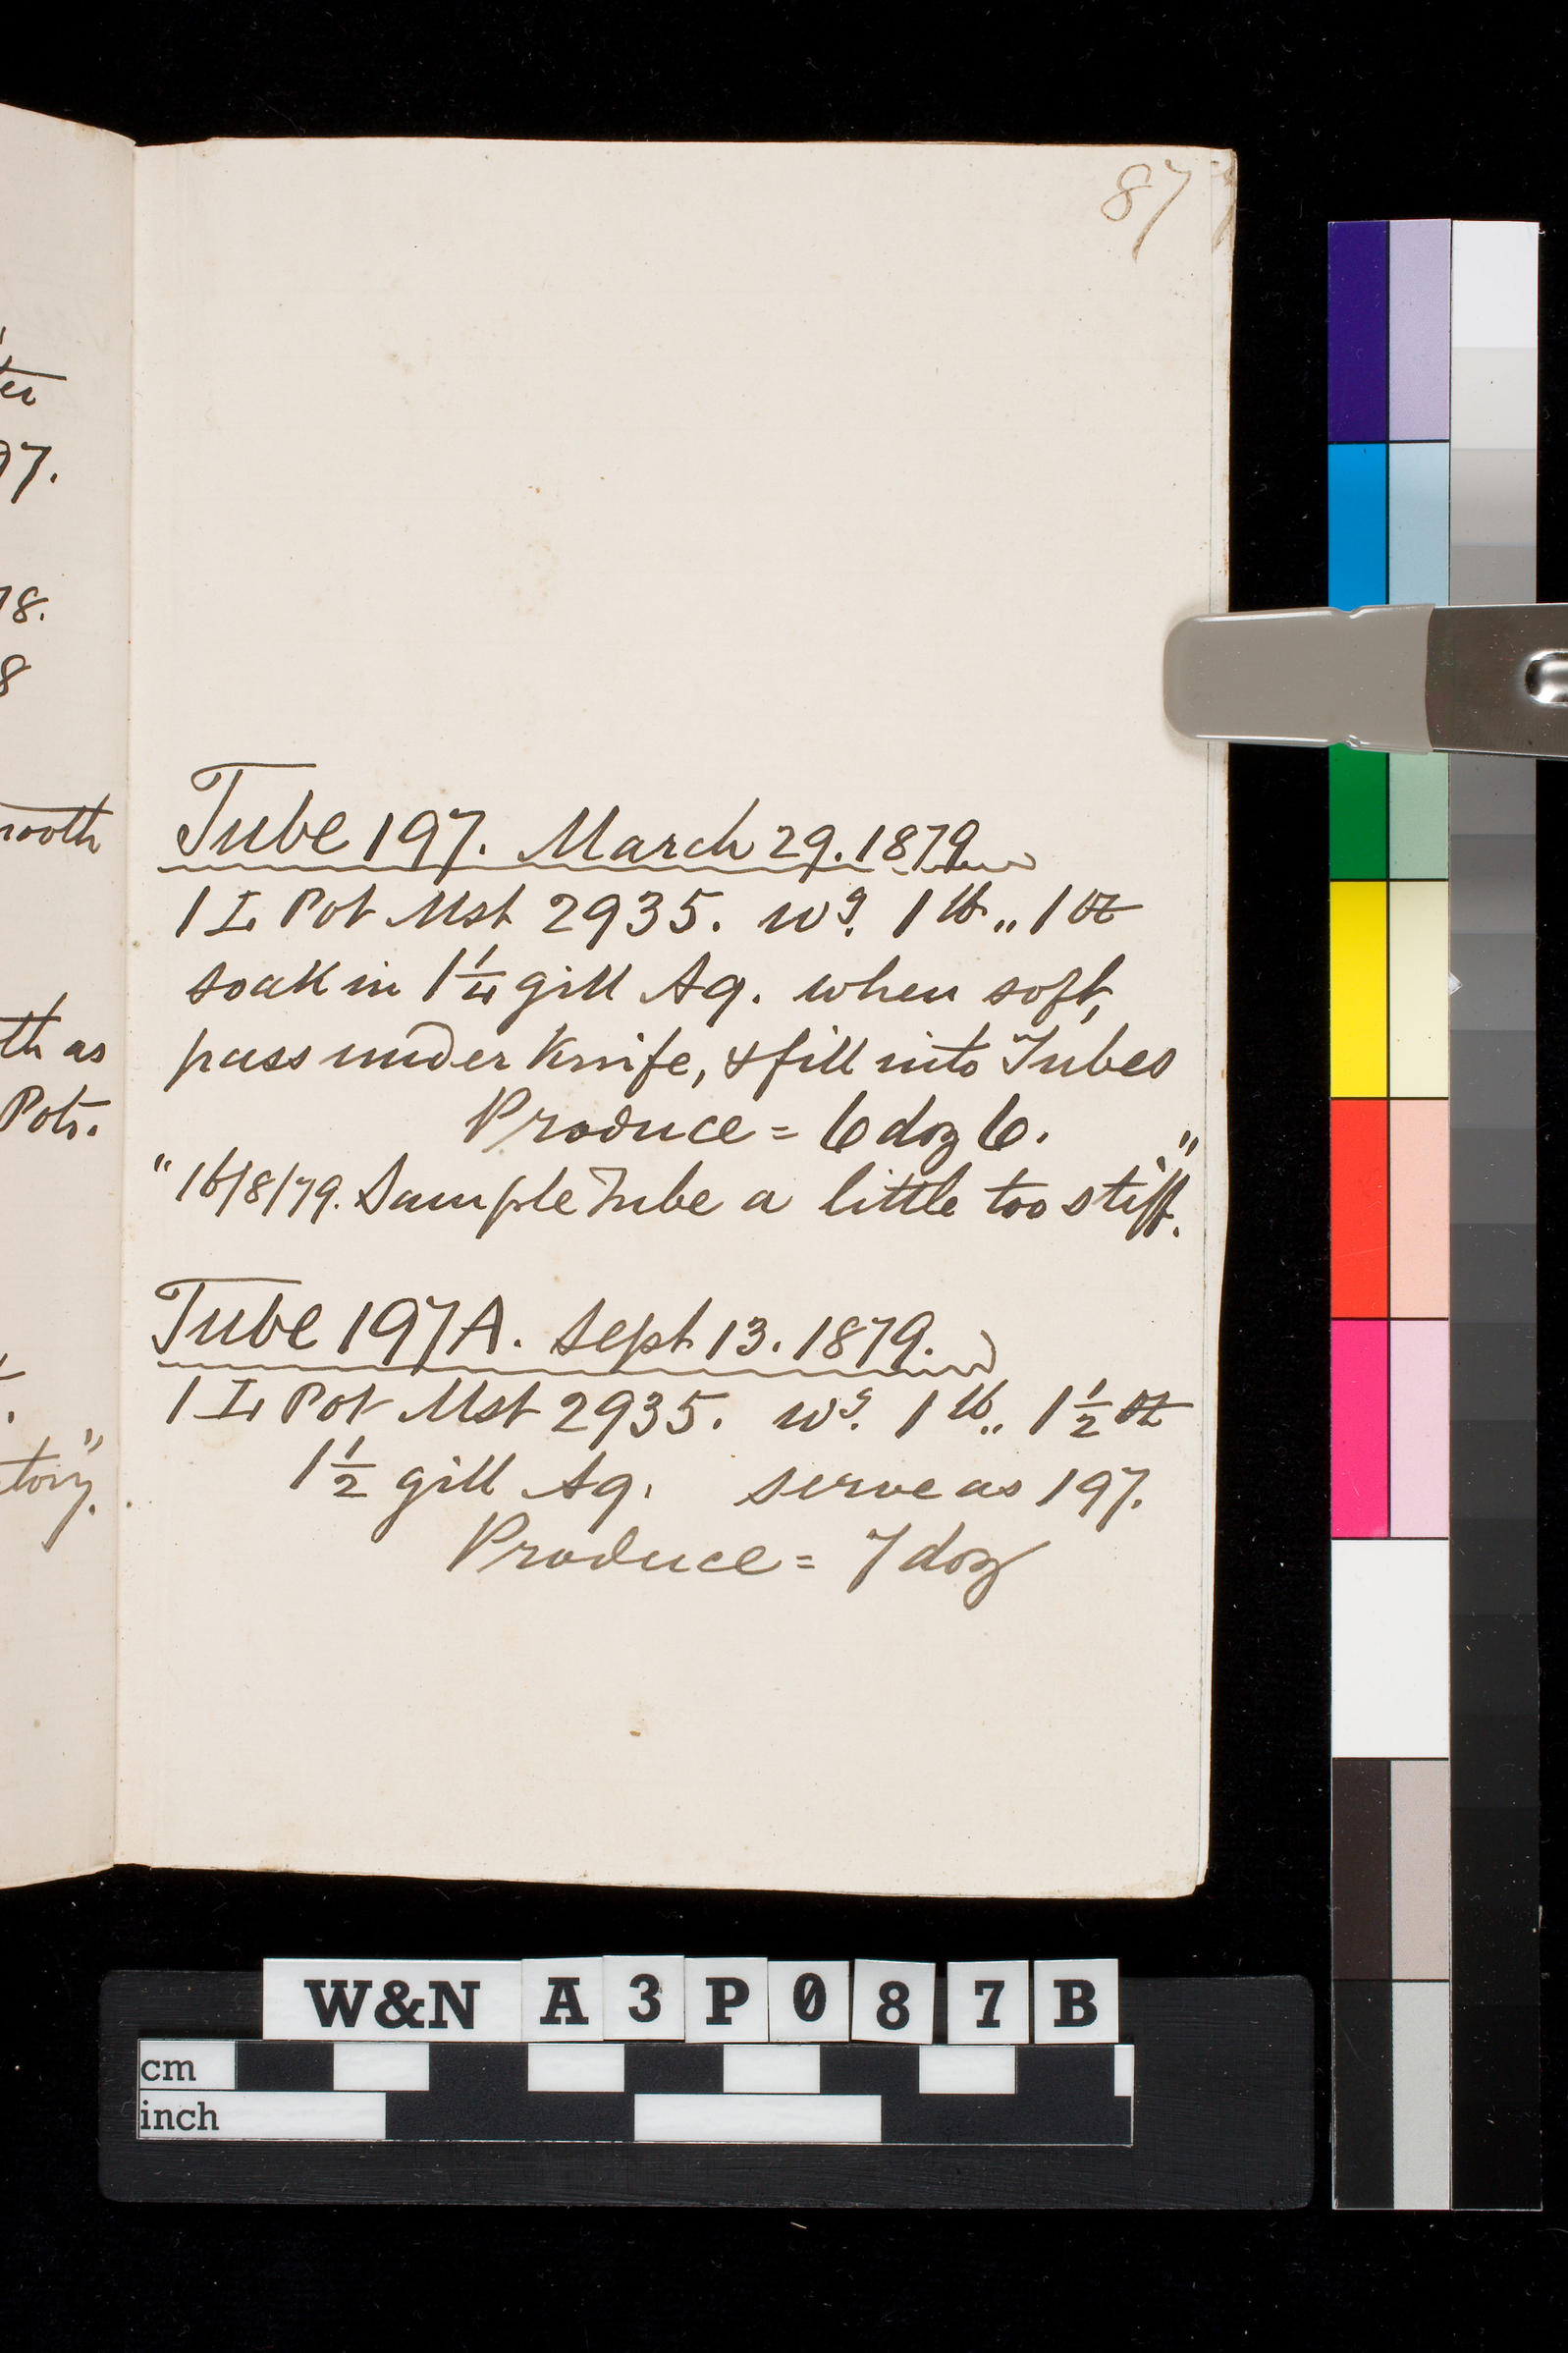 87
ter
97.
78.
8
mooth
th as
Pots.
tory."
Tube 197. March 29. 1879
1 L Pot Mst 2935. wg. 1 lb,, 1 oz
soak in 1 1/4 gill Aq. when soft,
pass under Knife, & fill into Tubes
Produce = 6 doz 6.
"16/8/79. Sample Tube a little too stiff."
Tube 197A. Sept 13. 1879.
1 L Pot Mst 2935. wg. 1 lb,, 1 1/2 oz
1 1/2 gill Aq. serve as 197.
Produce = 7 doz
W&N A3P087B
cm
inch